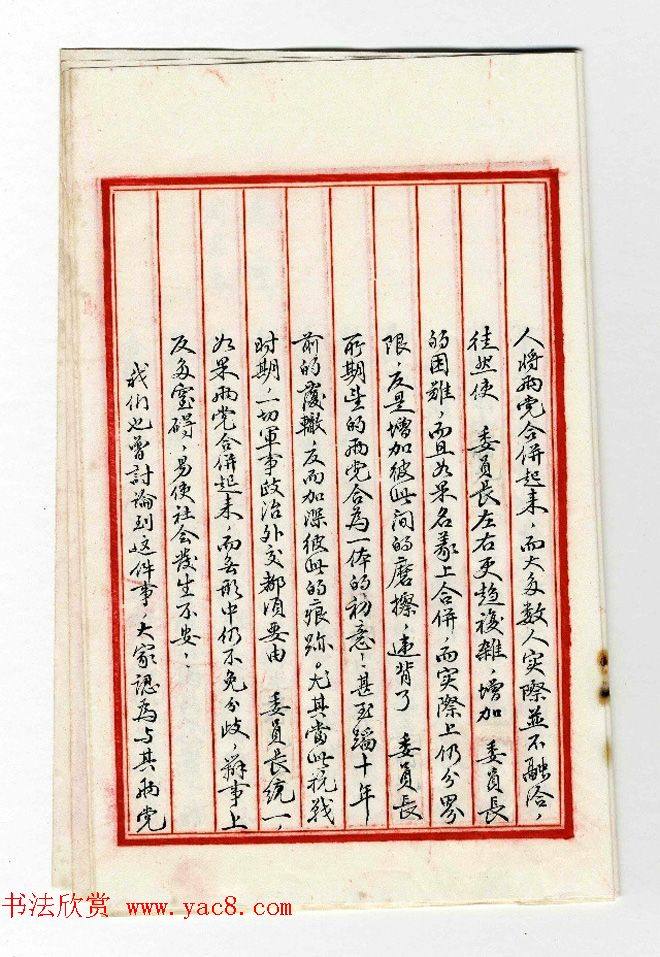 人将两党合併起来，而大多数人实際並不融洽，
徒然使　委員長左右更趋複雜，增加　委員長
的困难，而且如果名義上合併，而实際上仍分界
限，反是增加彼此间的磨擦，违背了　委員長
所期望的两党合為一体的初意；甚至蹈十年
前的覆辙，反而加深彼此的痕跡。尤其當此抗战
时期，一切軍事政治外交都须要由　委員長统一，
如果两党合併起来，而无形中仍不免分歧，辦事上
反多窒碍，易使社会發生不安；
我们也曾討論到这件事，大家認為与其两党
书法欣赏 www.yac8.com